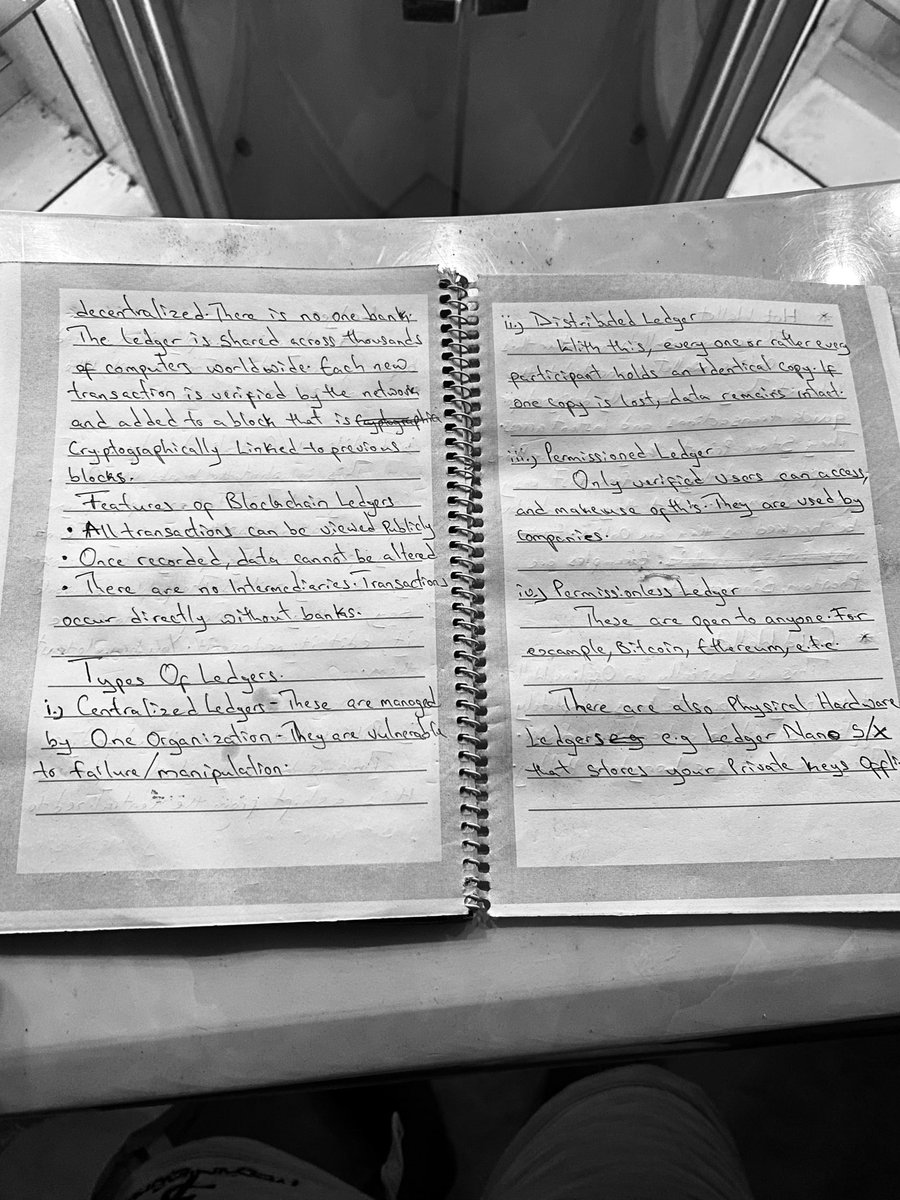 decentralized. There is no one bank.
The ledger is shared across thousands
of computers worldwide. Each new
transaction is verified by the network
and added to a block that is
Cryptographically Linked to previous
blocks.
Features of Blockchain Ledgers
• All transactions can be viewed Publicly
• Once recorded, data cannot be altered
• There are no Intermediaries. Transactions
occur directly without banks.
Types Of Ledgers.
i.) Centralized Ledgers - These are managed
by One Organization - They are vulnerable
to failure/manipulation.
ii.) Distributed Ledger
With this, every one or rather every
participant holds an Identical Copy. If
one copy is lost, data remains intact.
iii.) Permissioned Ledger
Only verified users can access,
and make use of this. They are used by
Companies.
iv.) Permissionless Ledger
These are open to anyone. For
example, Bitcoin, Ethereum, e.t.c.
There are also Physical Hardware
Ledgers e.g Ledger Nano S/X
that stores your Private Keys